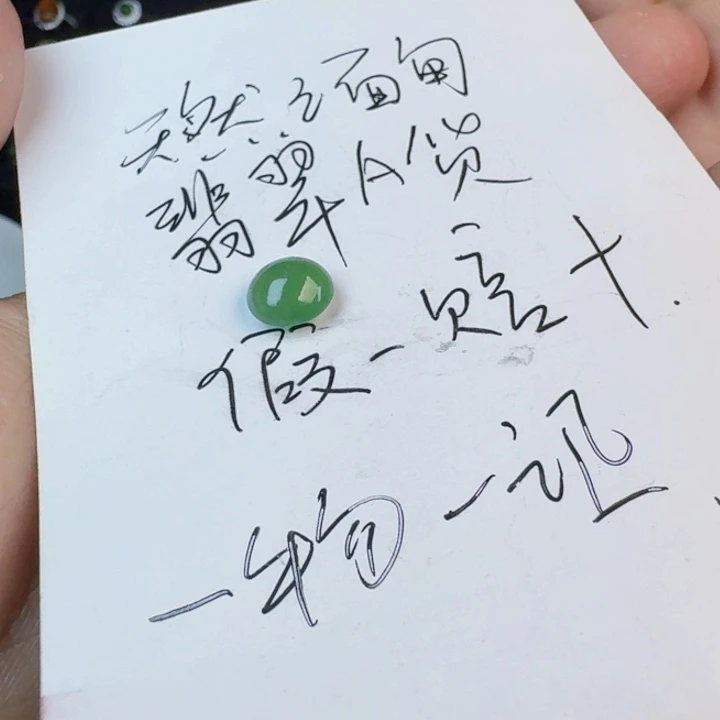 天然缅甸
翡翠A货
假一赔十.
一物一证